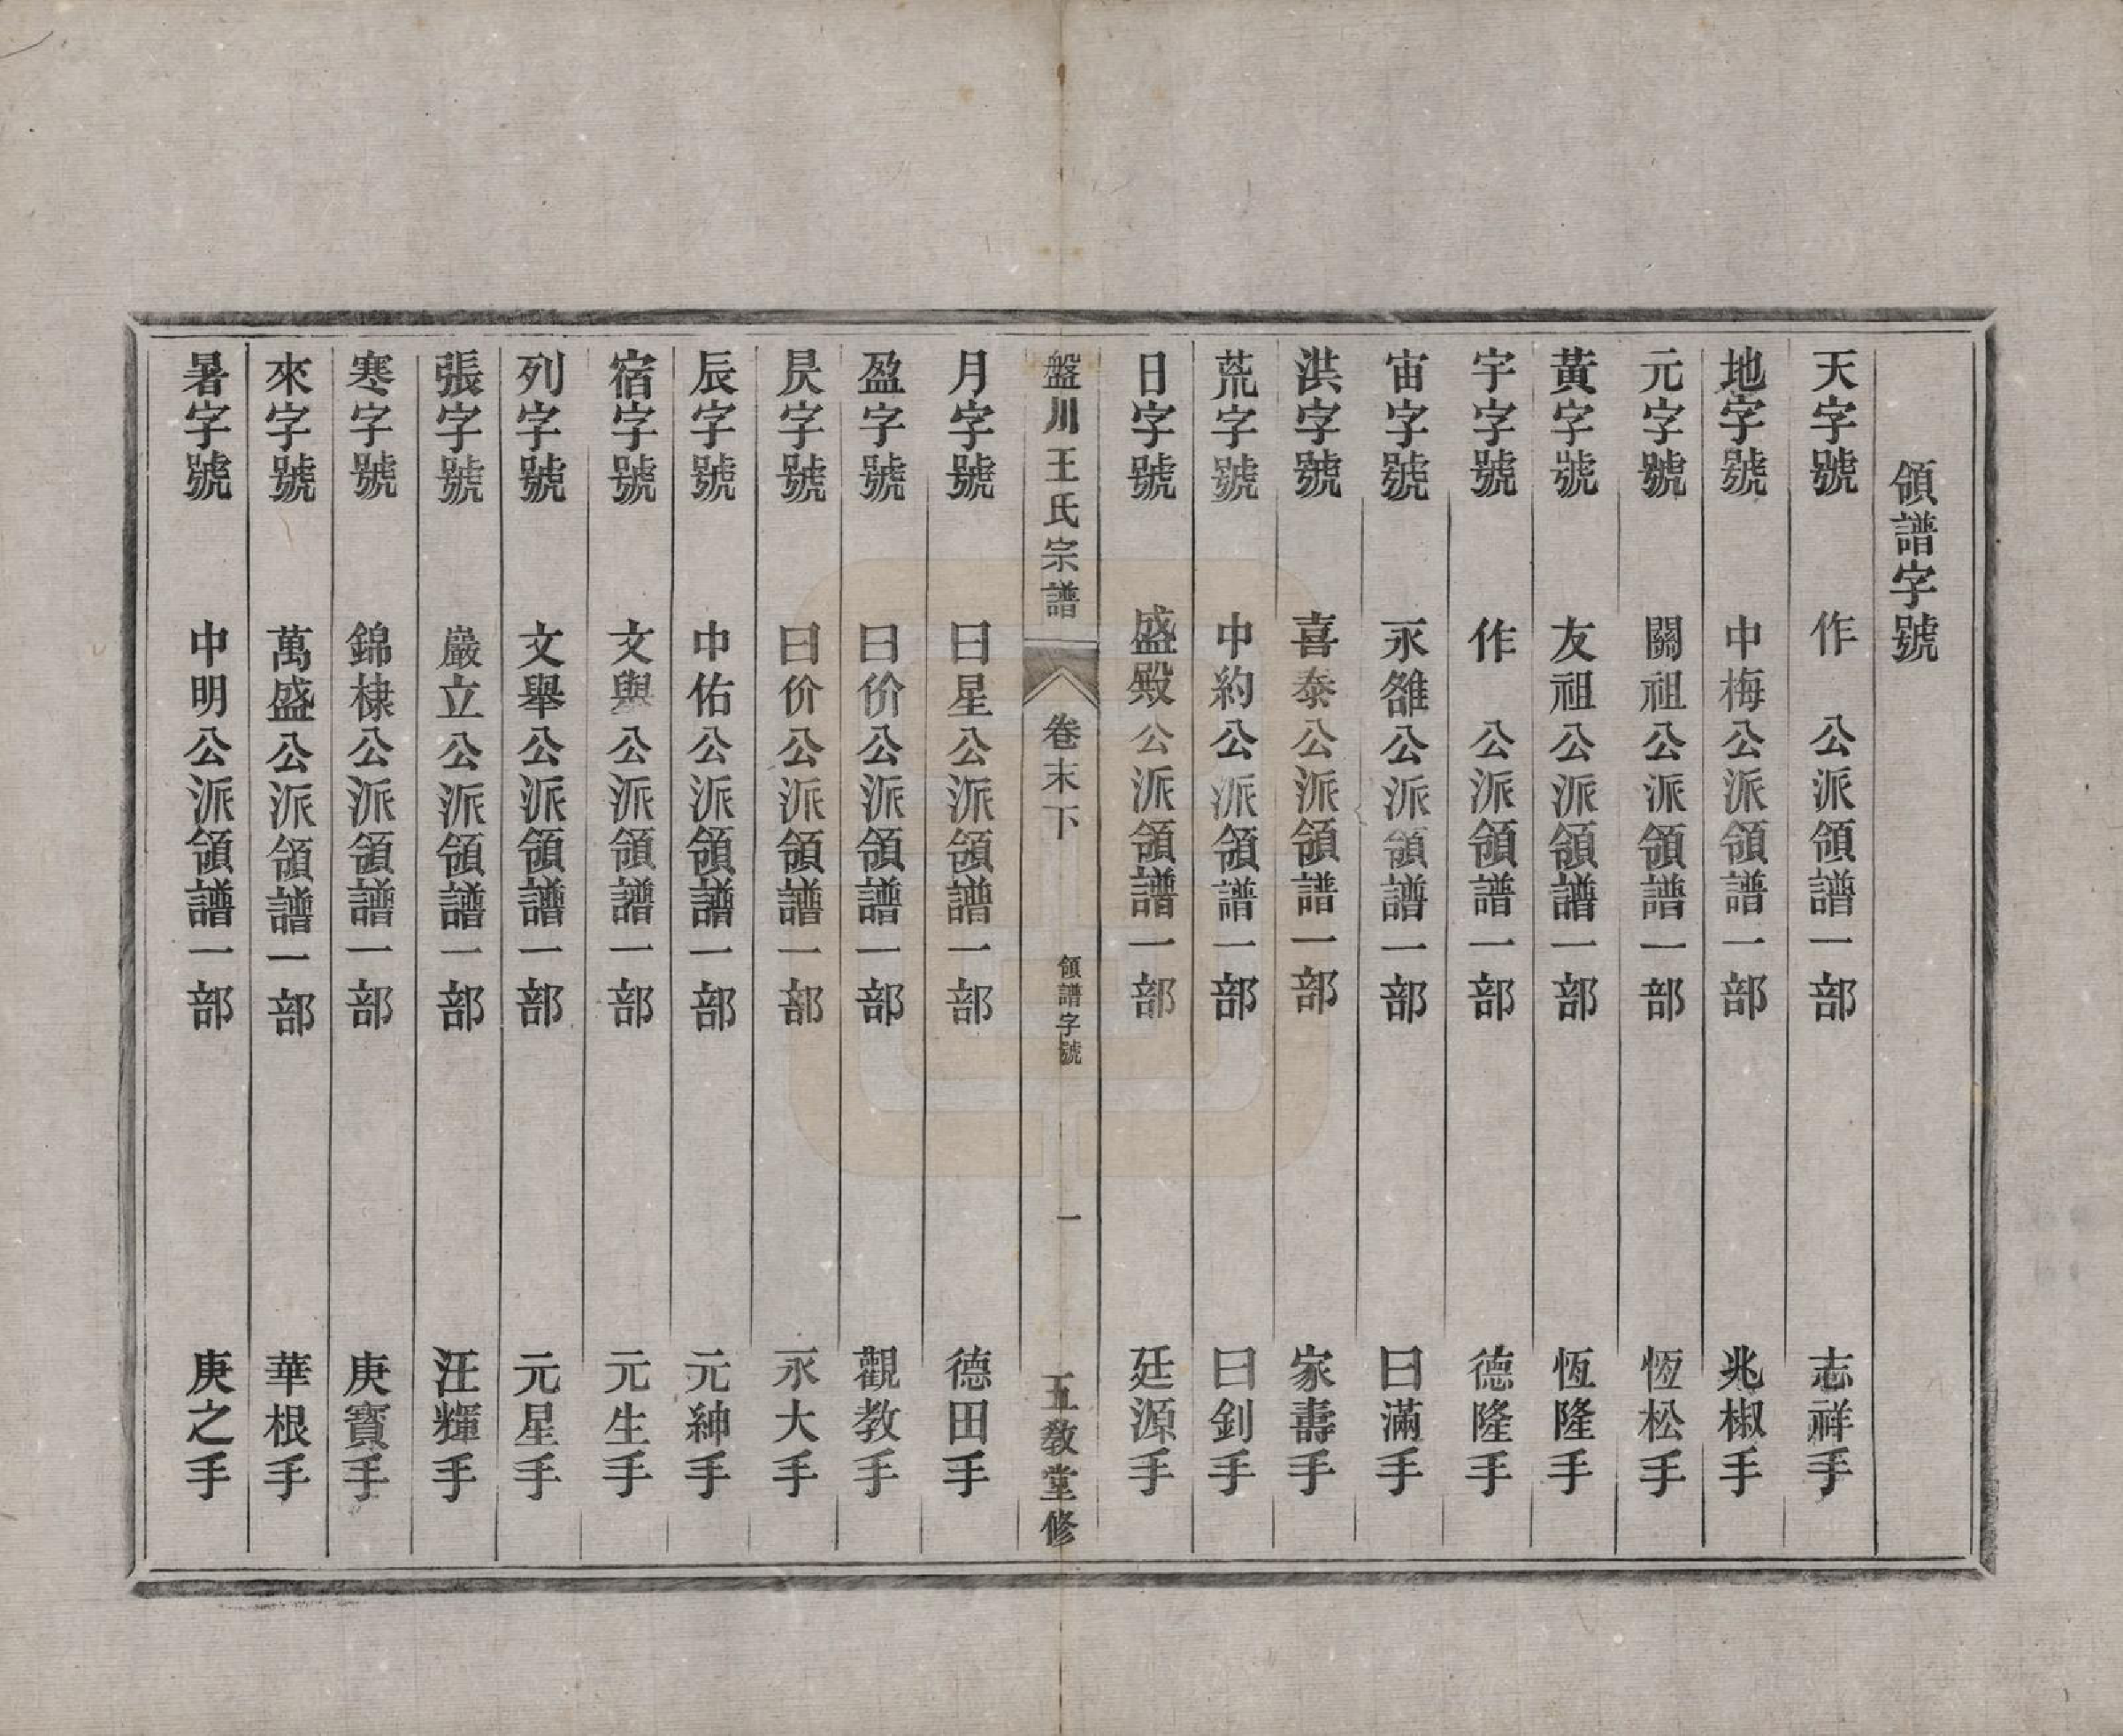 領譜字號
天字號 作 公派領譜一部 志祥手
地字號 中梅公派領譜一部 兆椒手
元字號 關祖公派領譜一部 恆松手
黃字號 友祖公派領譜一部 恆隆手
宇字號 作 公派領譜一部 德隆手
宙字號 永雒公派領譜一部 曰滿手
洪字號 喜泰公派領譜一部 家壽手
荒字號 中約公派領譜一部 曰釗手
日字號 盛殿公派領譜一部 廷源手
盤川王氏宗譜 卷末下 領譜字號 一 五教堂修
月字號 曰星公派領譜一部 德田手
盈字號 曰价公派領譜一部 觀教手
昃字號 曰价公派領譜一部 永大手
辰字號 中佑公派領譜一部 元紳手
宿字號 文與公派領譜一部 元生手
列字號 文舉公派領譜一部 元星手
張字號 嚴立公派領譜一部 汪輝手
寒字號 錦棣公派領譜一部 庚寶手
來字號 萬盛公派領譜一部 華根手
暑字號 中明公派領譜一部 庚之手